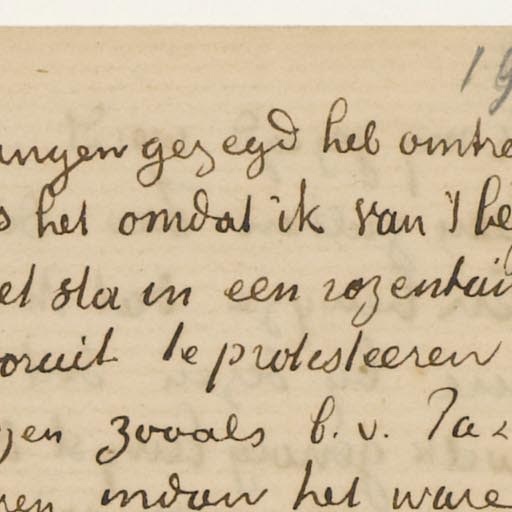 19
ungen gezegd heb omtre
s het omdat ik van 't be
et sla in een rozentui
oruit te protesteeren
gen zooals b.v. Ta
en indon het ware